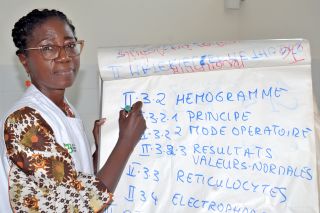 II-3.2 HEMOGRAMME
3.2.1 PRINCIPE
3.2.2 MODE OPERATOIRE
II-3.2.3 RESULTATS
VALEURS-NORMALES
II-3.3 RETICULOCYTES
II 3.4 ELECTROPHOR